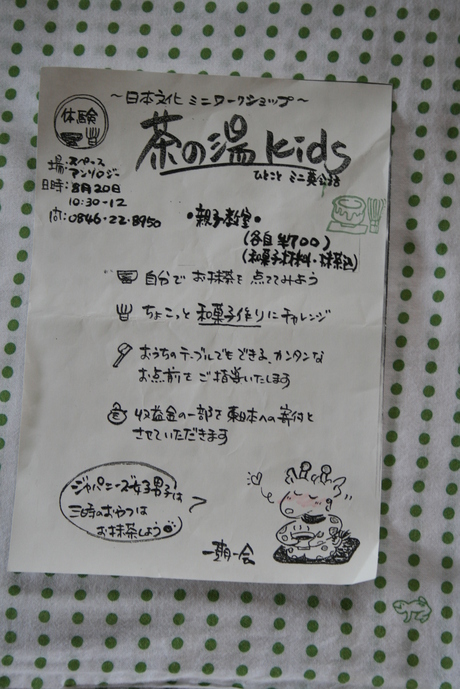 〜日本文化 ミニワークショップ〜
体験
茶の湯 Kids
ひとこと ミニ英会話
場:スペース
アンソロジー
日時:8月20日
10:30-12
問:0846-22-8950
・親子教室・
(各自 ¥700)
(和菓子材料・抹茶込)
自分で お抹茶を 点ててみよう
ちょこっと 和菓子作りにチャレンジ
おうちのテーブルでもできる、カンタンな
お点前を ご指導いたします
収益金の一部を 東日本への寄付と
させていただきます
ジャパニーズ女子男子は
三時のおやつは
お抹茶しよう
一期一会